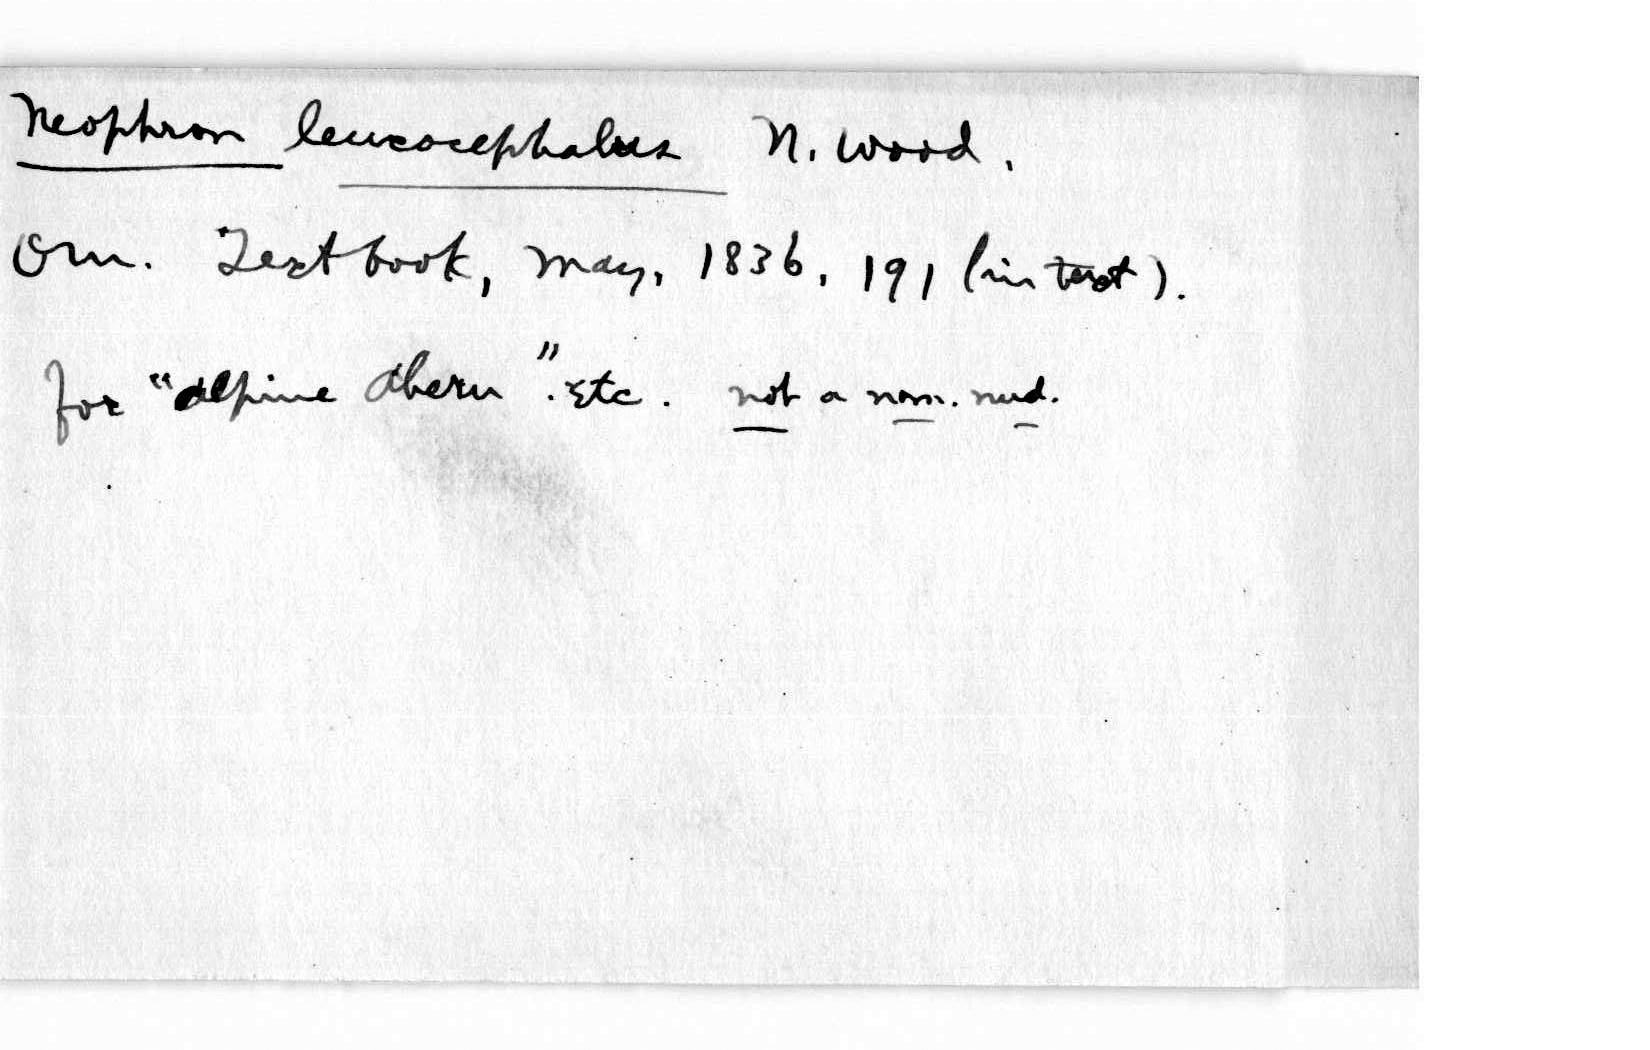 Neophron leucocephalus N. Wood.
Orn. Textbook, May, 1836, 191 (in text).
for "alpine Ahern". Etc. not a nom. nud.